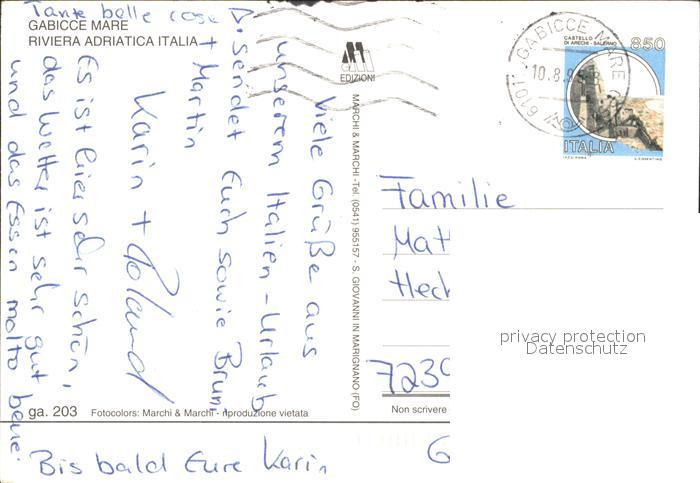 Tante belle cose
GABICCE MARE
RIVIERA ADRIATICA ITALIA
Viele Grüße aus
unserem Italien-Urlaub
sendet Euch sowie Bruni
+ Martin
Karin + Roland
Es ist hier sehr schön,
das Wetter ist sehr gut
und das Essen molto bene.
Bis bald Eure Karin
ga. 203
Fotocolors: Marchi & Marchi - riproduzione vietata
EDIZIONI
MARCHI & MARCHI - Tel. (0541) 955157 - S. GIOVANNI IN MARIGNANO (FO)
GABICCE MARE
61011
10.8.9
CASTELLO
DI ARECHI - SALERNO
850
ITALIA
Familie
Mat
Hech
7239
G
Non scrivere
privacy protection
Datenschutz